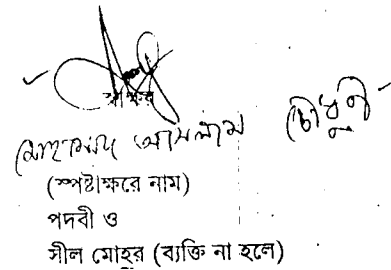 স্বাক্ষর
মোহাম্মদ আসলাম চৌধুরী
(স্পষ্টাক্ষরে নাম)
পদবী ও
সীল মোহর (ব্যক্তি না হলে)